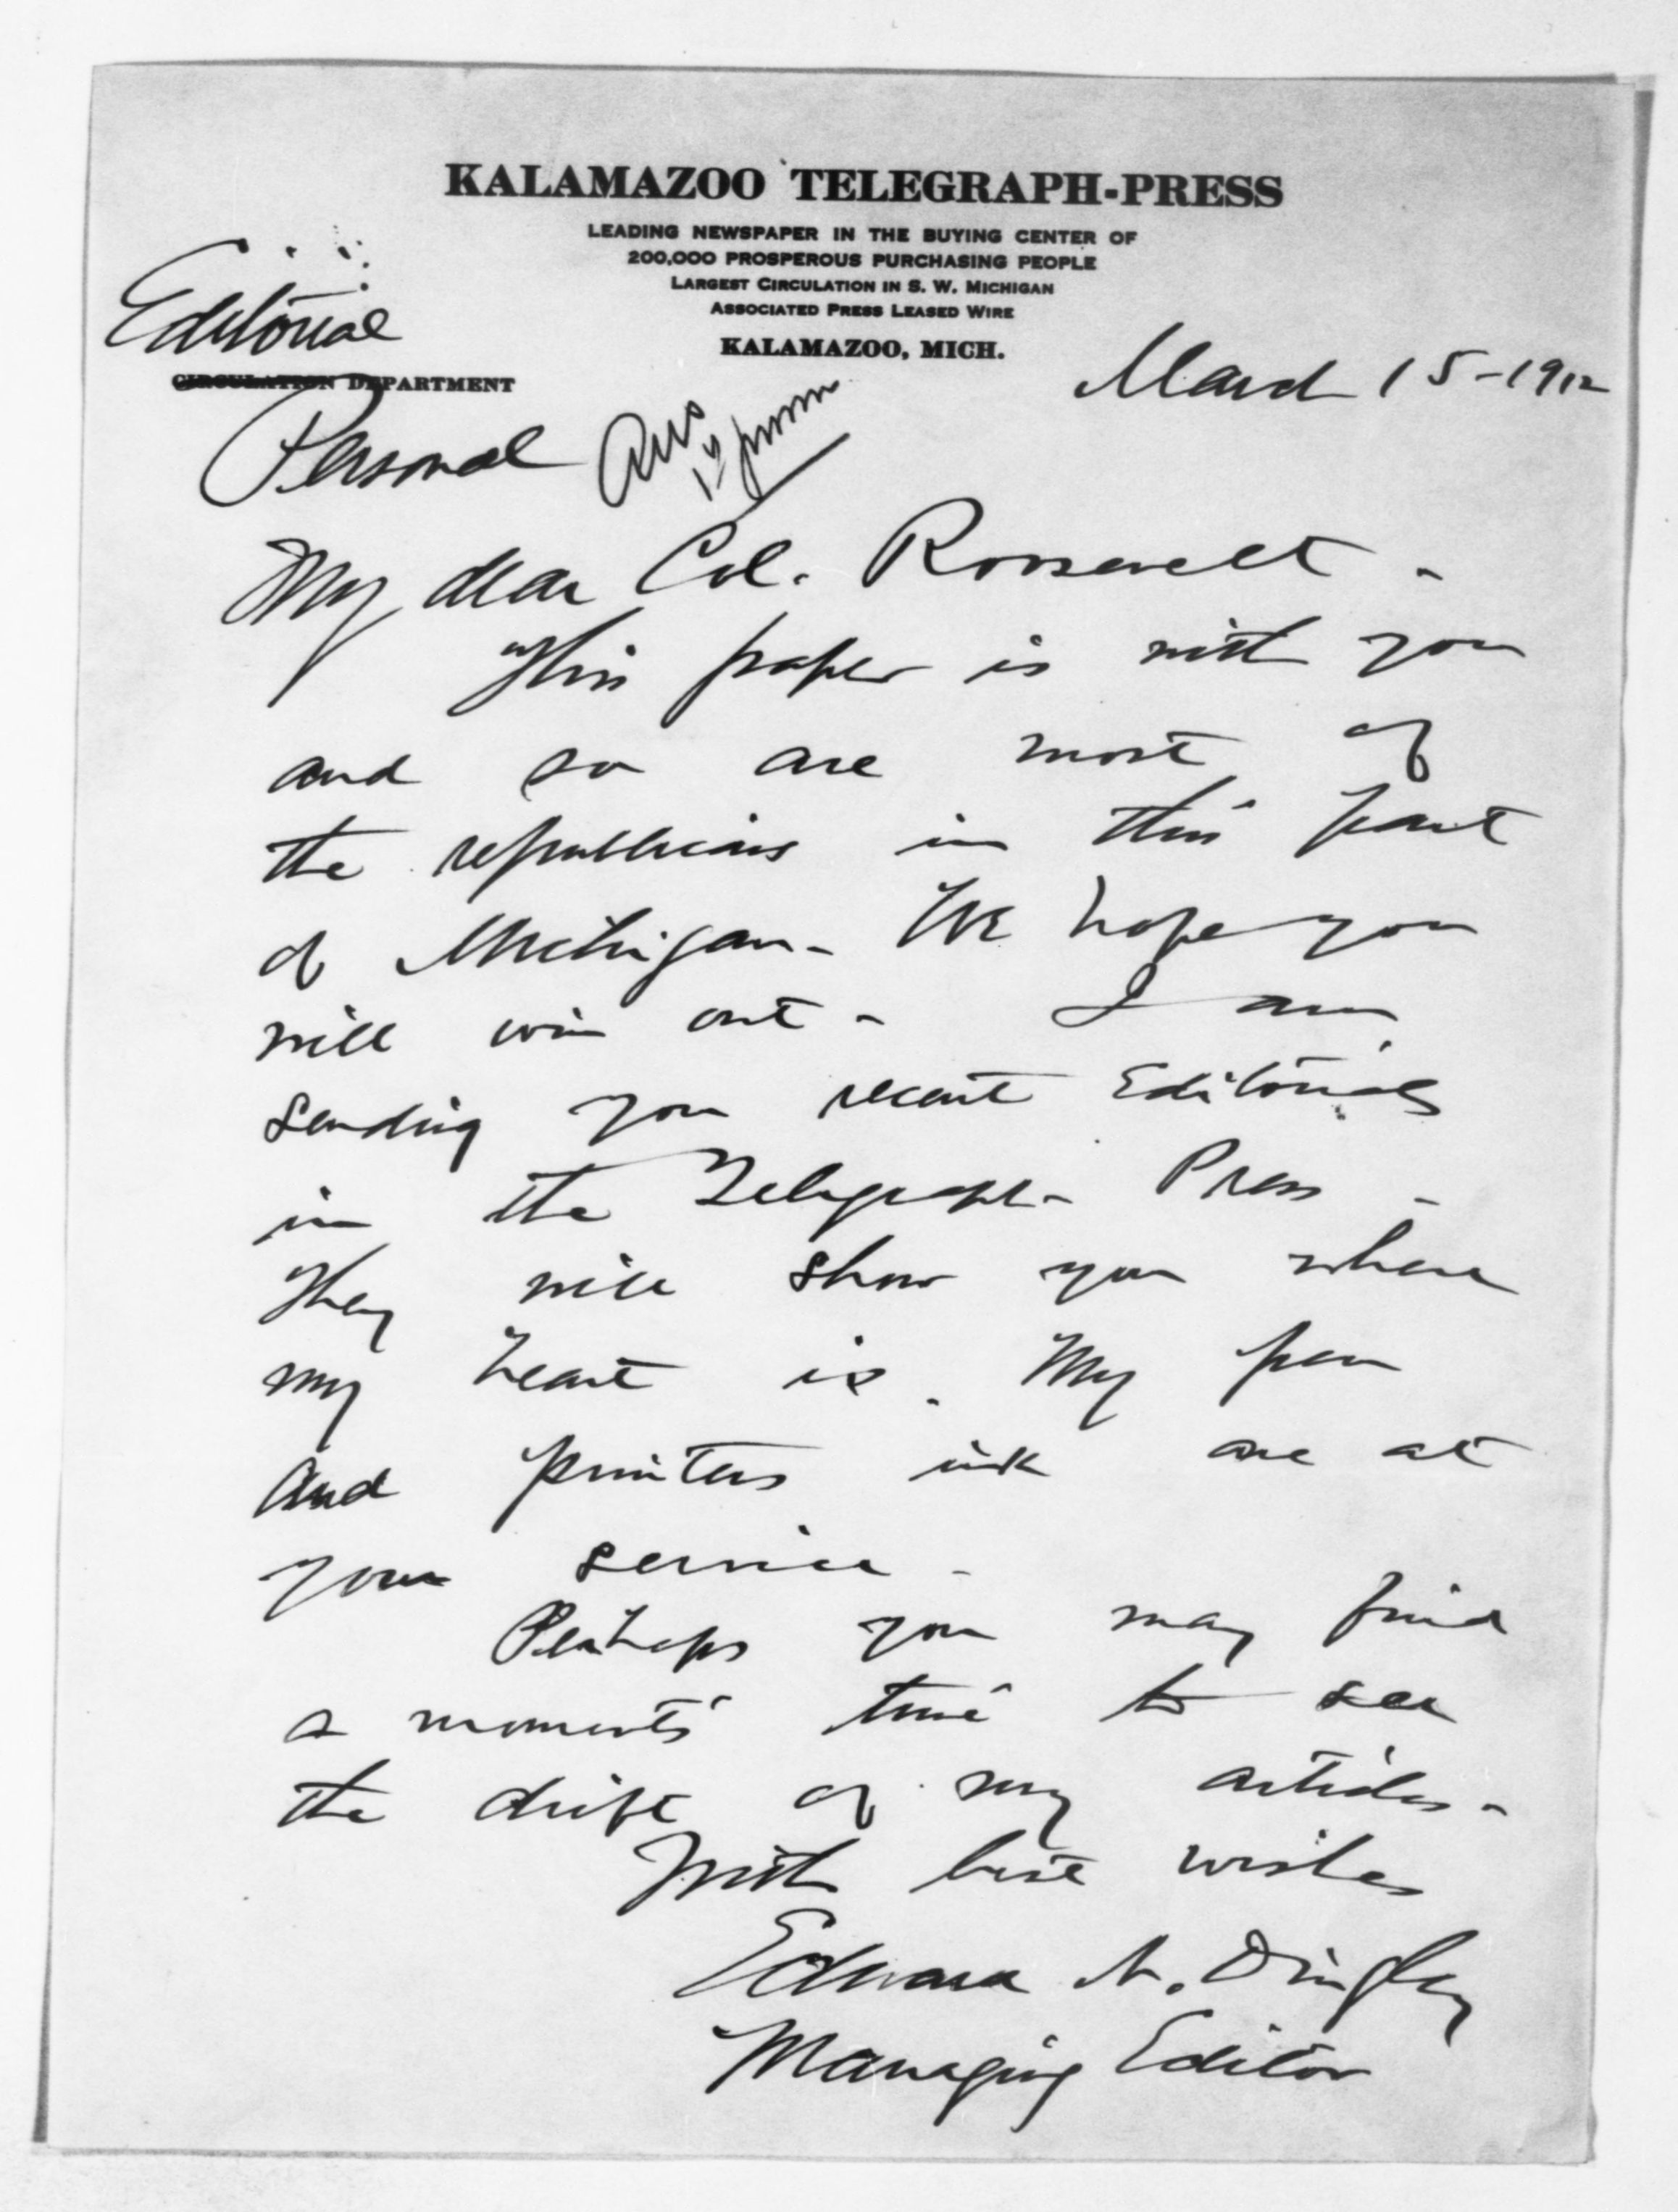 KALAMAZOO TELEGRAPH-PRESS
LEADING NEWSPAPER IN THE BUYING CENTER OF
200,000 PROSPEROUS PURCHASING PEOPLE
LARGEST CIRCULATION IN S. W. MICHIGAN
ASSOCIATED PRESS LEASED WIRE
KALAMAZOO, MICH.
Editorial
CIRCULATION DEPARTMENT
March 15-1912
Personal
My dear Col. Roosevelt -
This paper is with you
and so are most of
the republicans in this part
of Michigan - We hope you
will win out - I am
sending you recent Editorials
in the Telegraph - Press -
They will show you where
my heart is. My pen
and printers ink are at
your service -
Perhaps you may find
a moments time to see
the drift of my articles -
With best wishes
Edward N. Dingley
Managing Editor